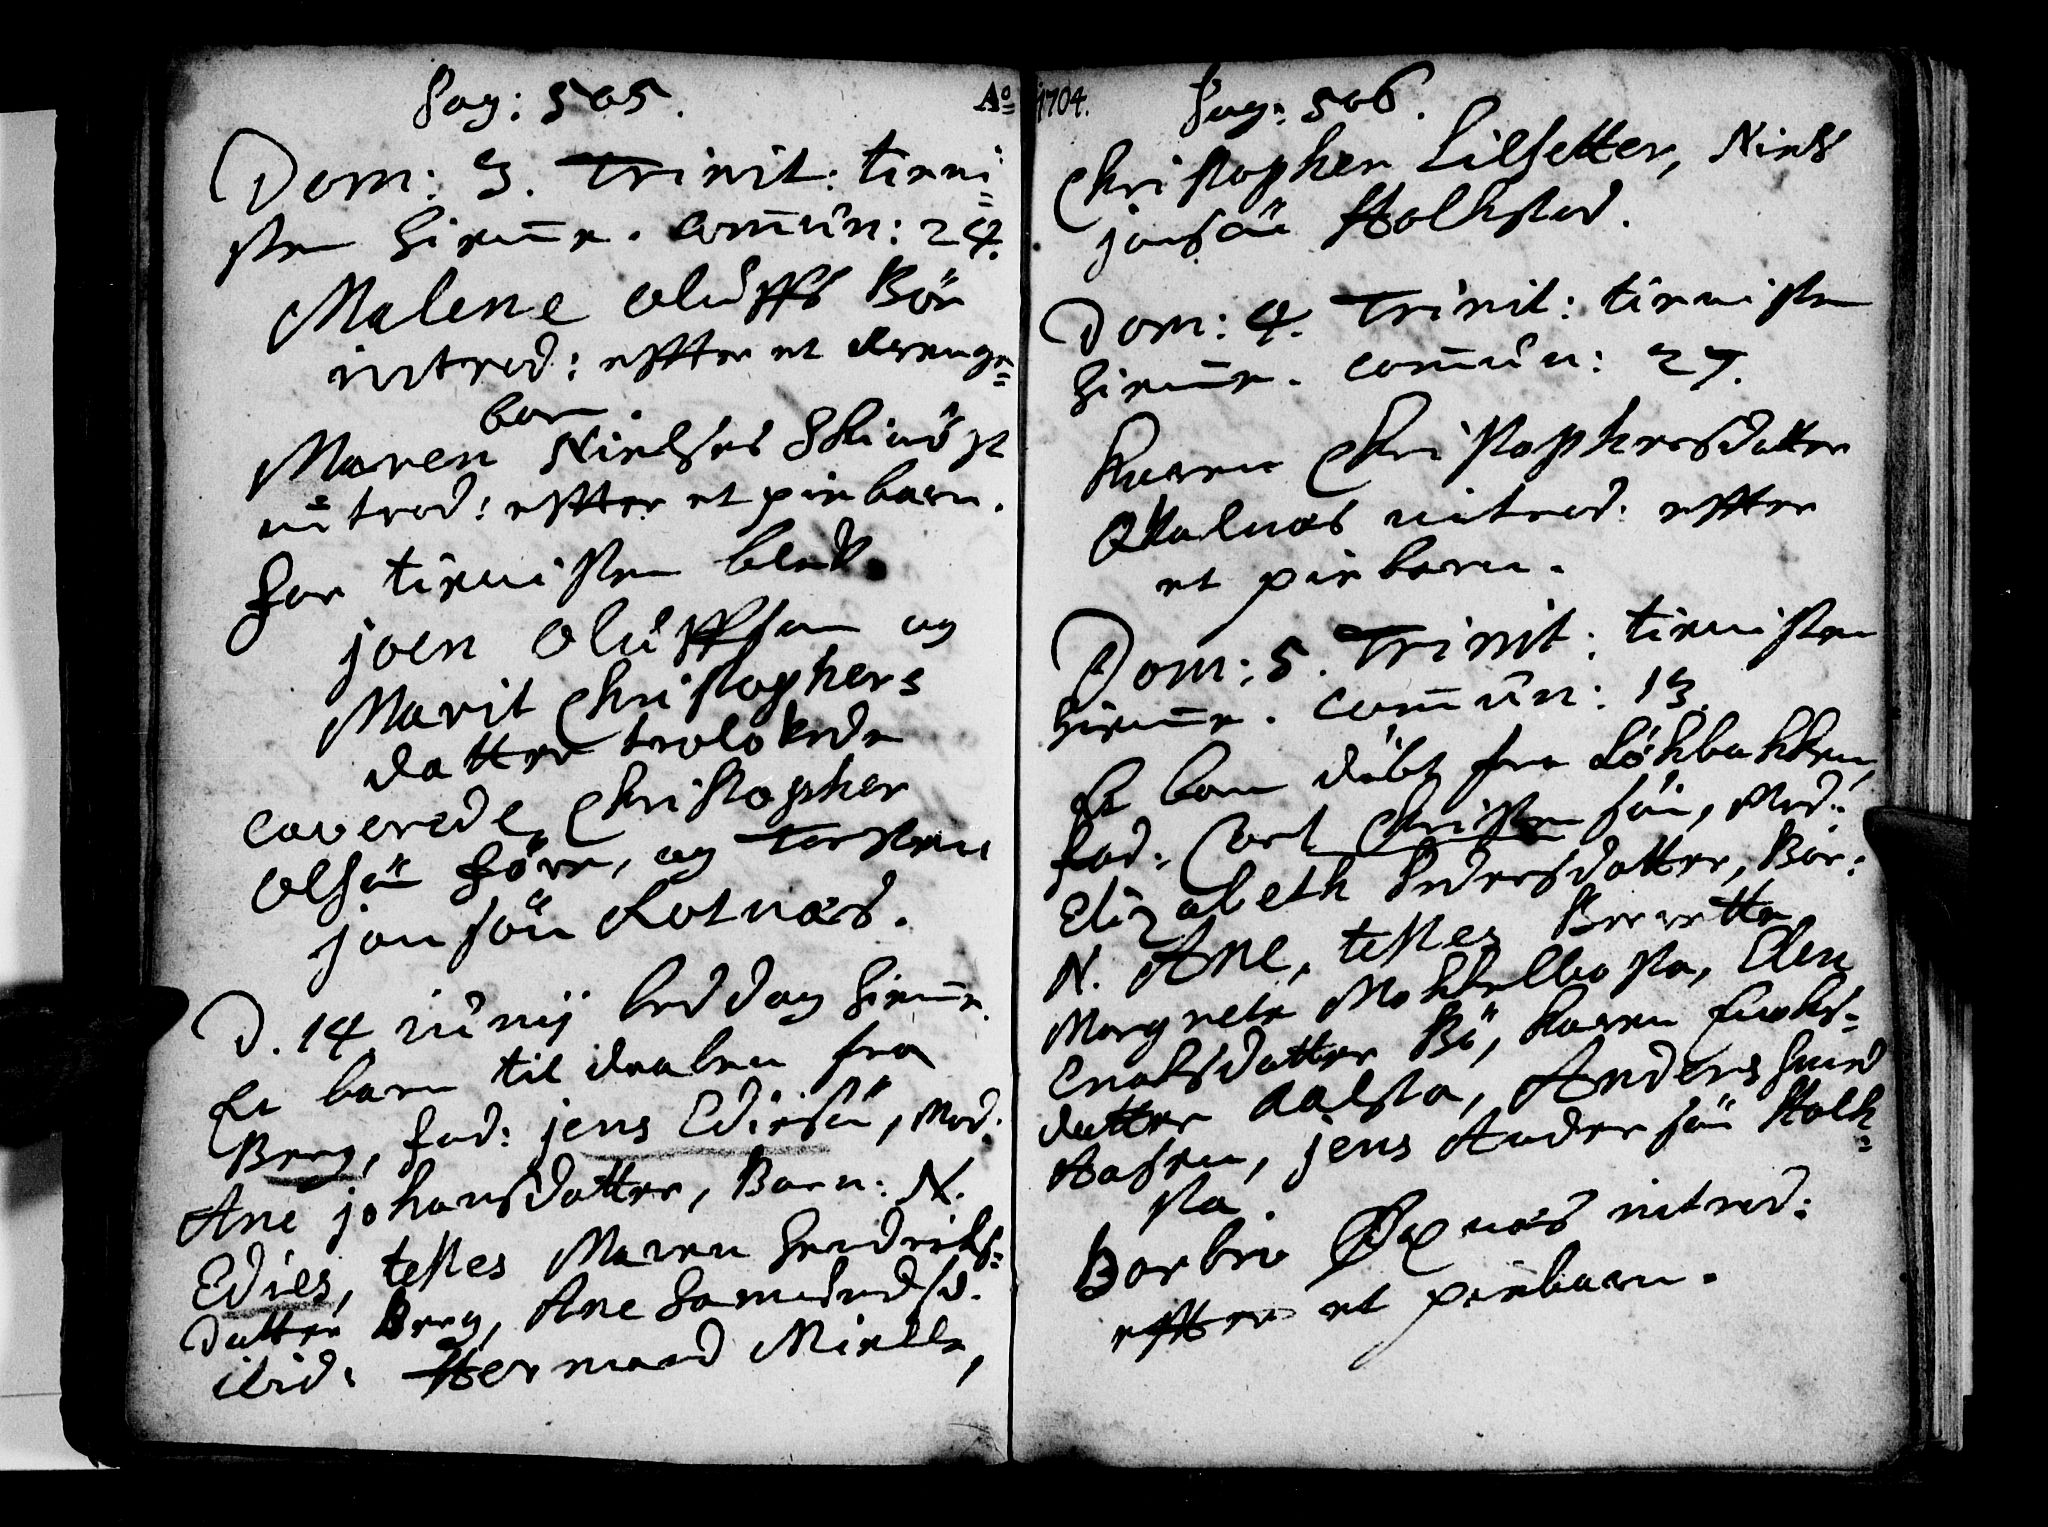 Pag: 505.
Dom: 3. Trinit: tieni=
sten hieme. com̅un: 24.
Malene Oluffs Bör
introd: effter et drenge=
barn.
Maren Nielses
introd: effter et piebarn.
For tienisten blef
joen Oluffsen og
Marit Christophers
datter trolofvede
caverede, Christopher
Olsön före, og Torsten
jonsön Rotnæs.
D. 14 iunij beddag hieme.
Et barn til draben fra
Berg, fad: jens Ediesön, Mod.
Ane johansdatter, Barn: N.
Edies, testes Maren Hendrichs=
datter Berg, Ane
ibid: Hermand Mielle,
A° 1704.
Pag: 506.
Christopher Lilsetter, Niels
jonsön Holkstad.
Dom: 4. Trinit: tienisten
hieme. com̅un: 27.
Karen Christophersdatter
introd: effter
et piebarn.
Dom: 5. Trinit: tienisten
hieme. com̅un: 13.
Et barn döbt fra Lökbakken,
fad: Cort Christensön, Mod:
Elizabeth Pedersdatter, Bar:
N. Ane, testes Berette
Margrete Mökkelbosta, Elen
Enoksdatter Bö, Karen Enoks=
datter Aalsta, Anders
Aasen, jens Andersön Holk=
sta.
Barbro Øxnæs introd:
effter et piebarn.